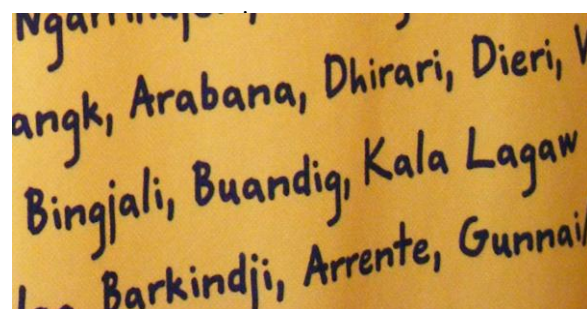 angk, Arabana, Dhirari, Dieri,
Bingjali, Buandig, Kala Lagaw
Barkindji, Arrente, Gunnai/